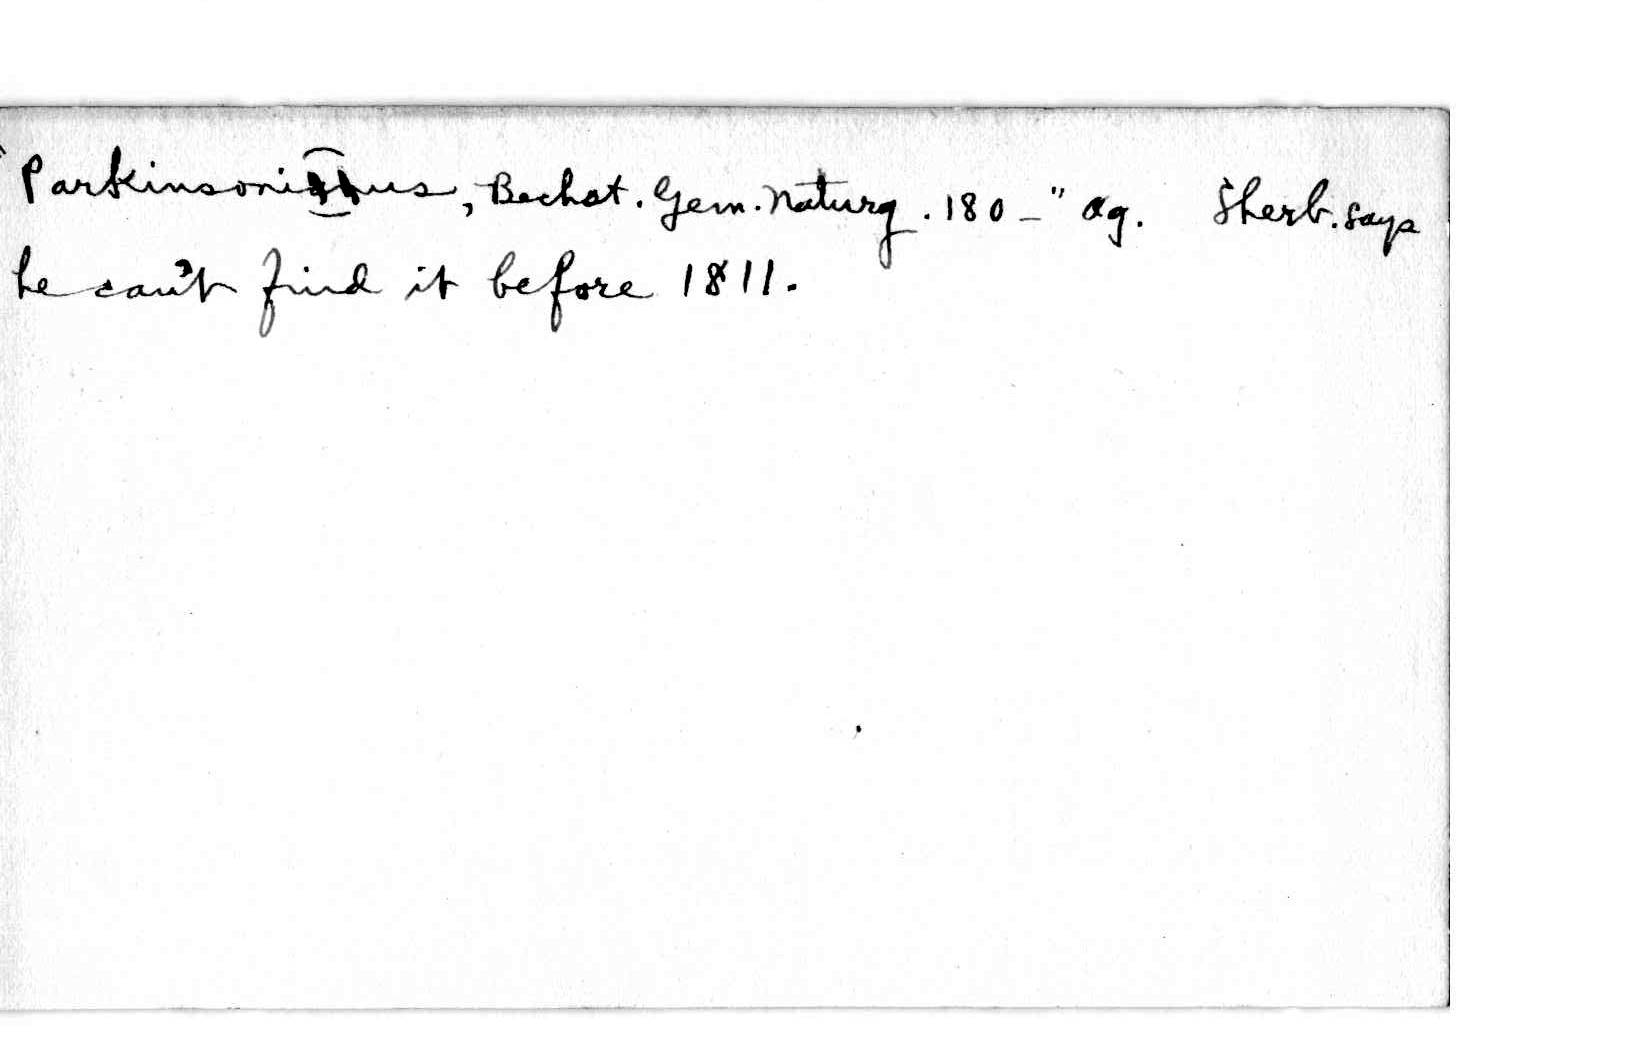 "Parkinsonianus, Bechst. Gem. Naturg. 180_" Ag. Sherb. says
he can't find it before 1811.